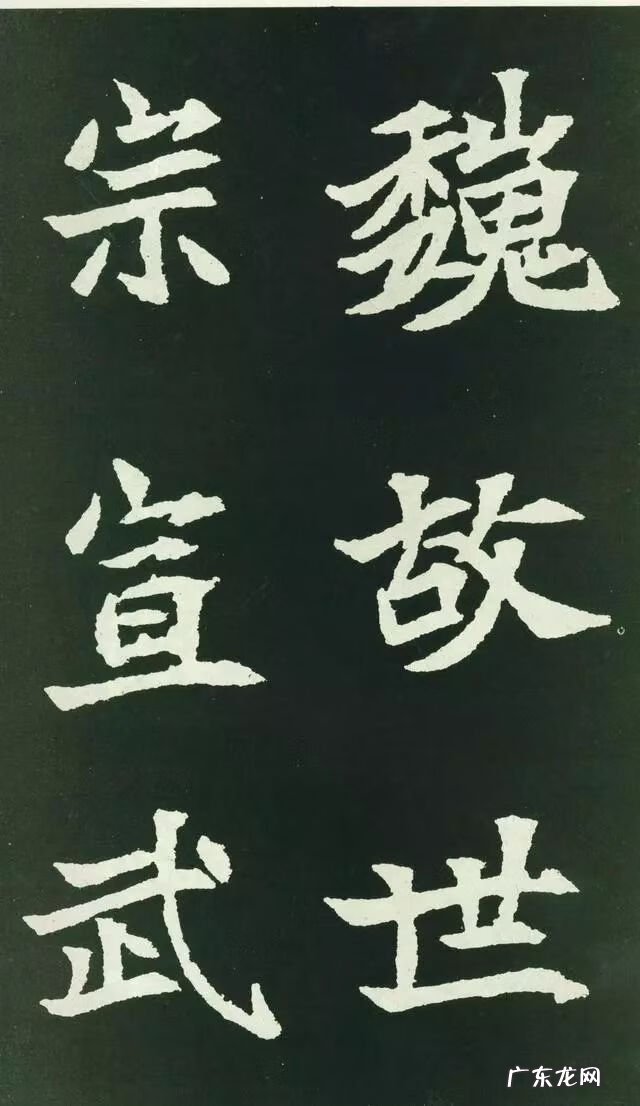 魏故世
宗宣武
广东龙网